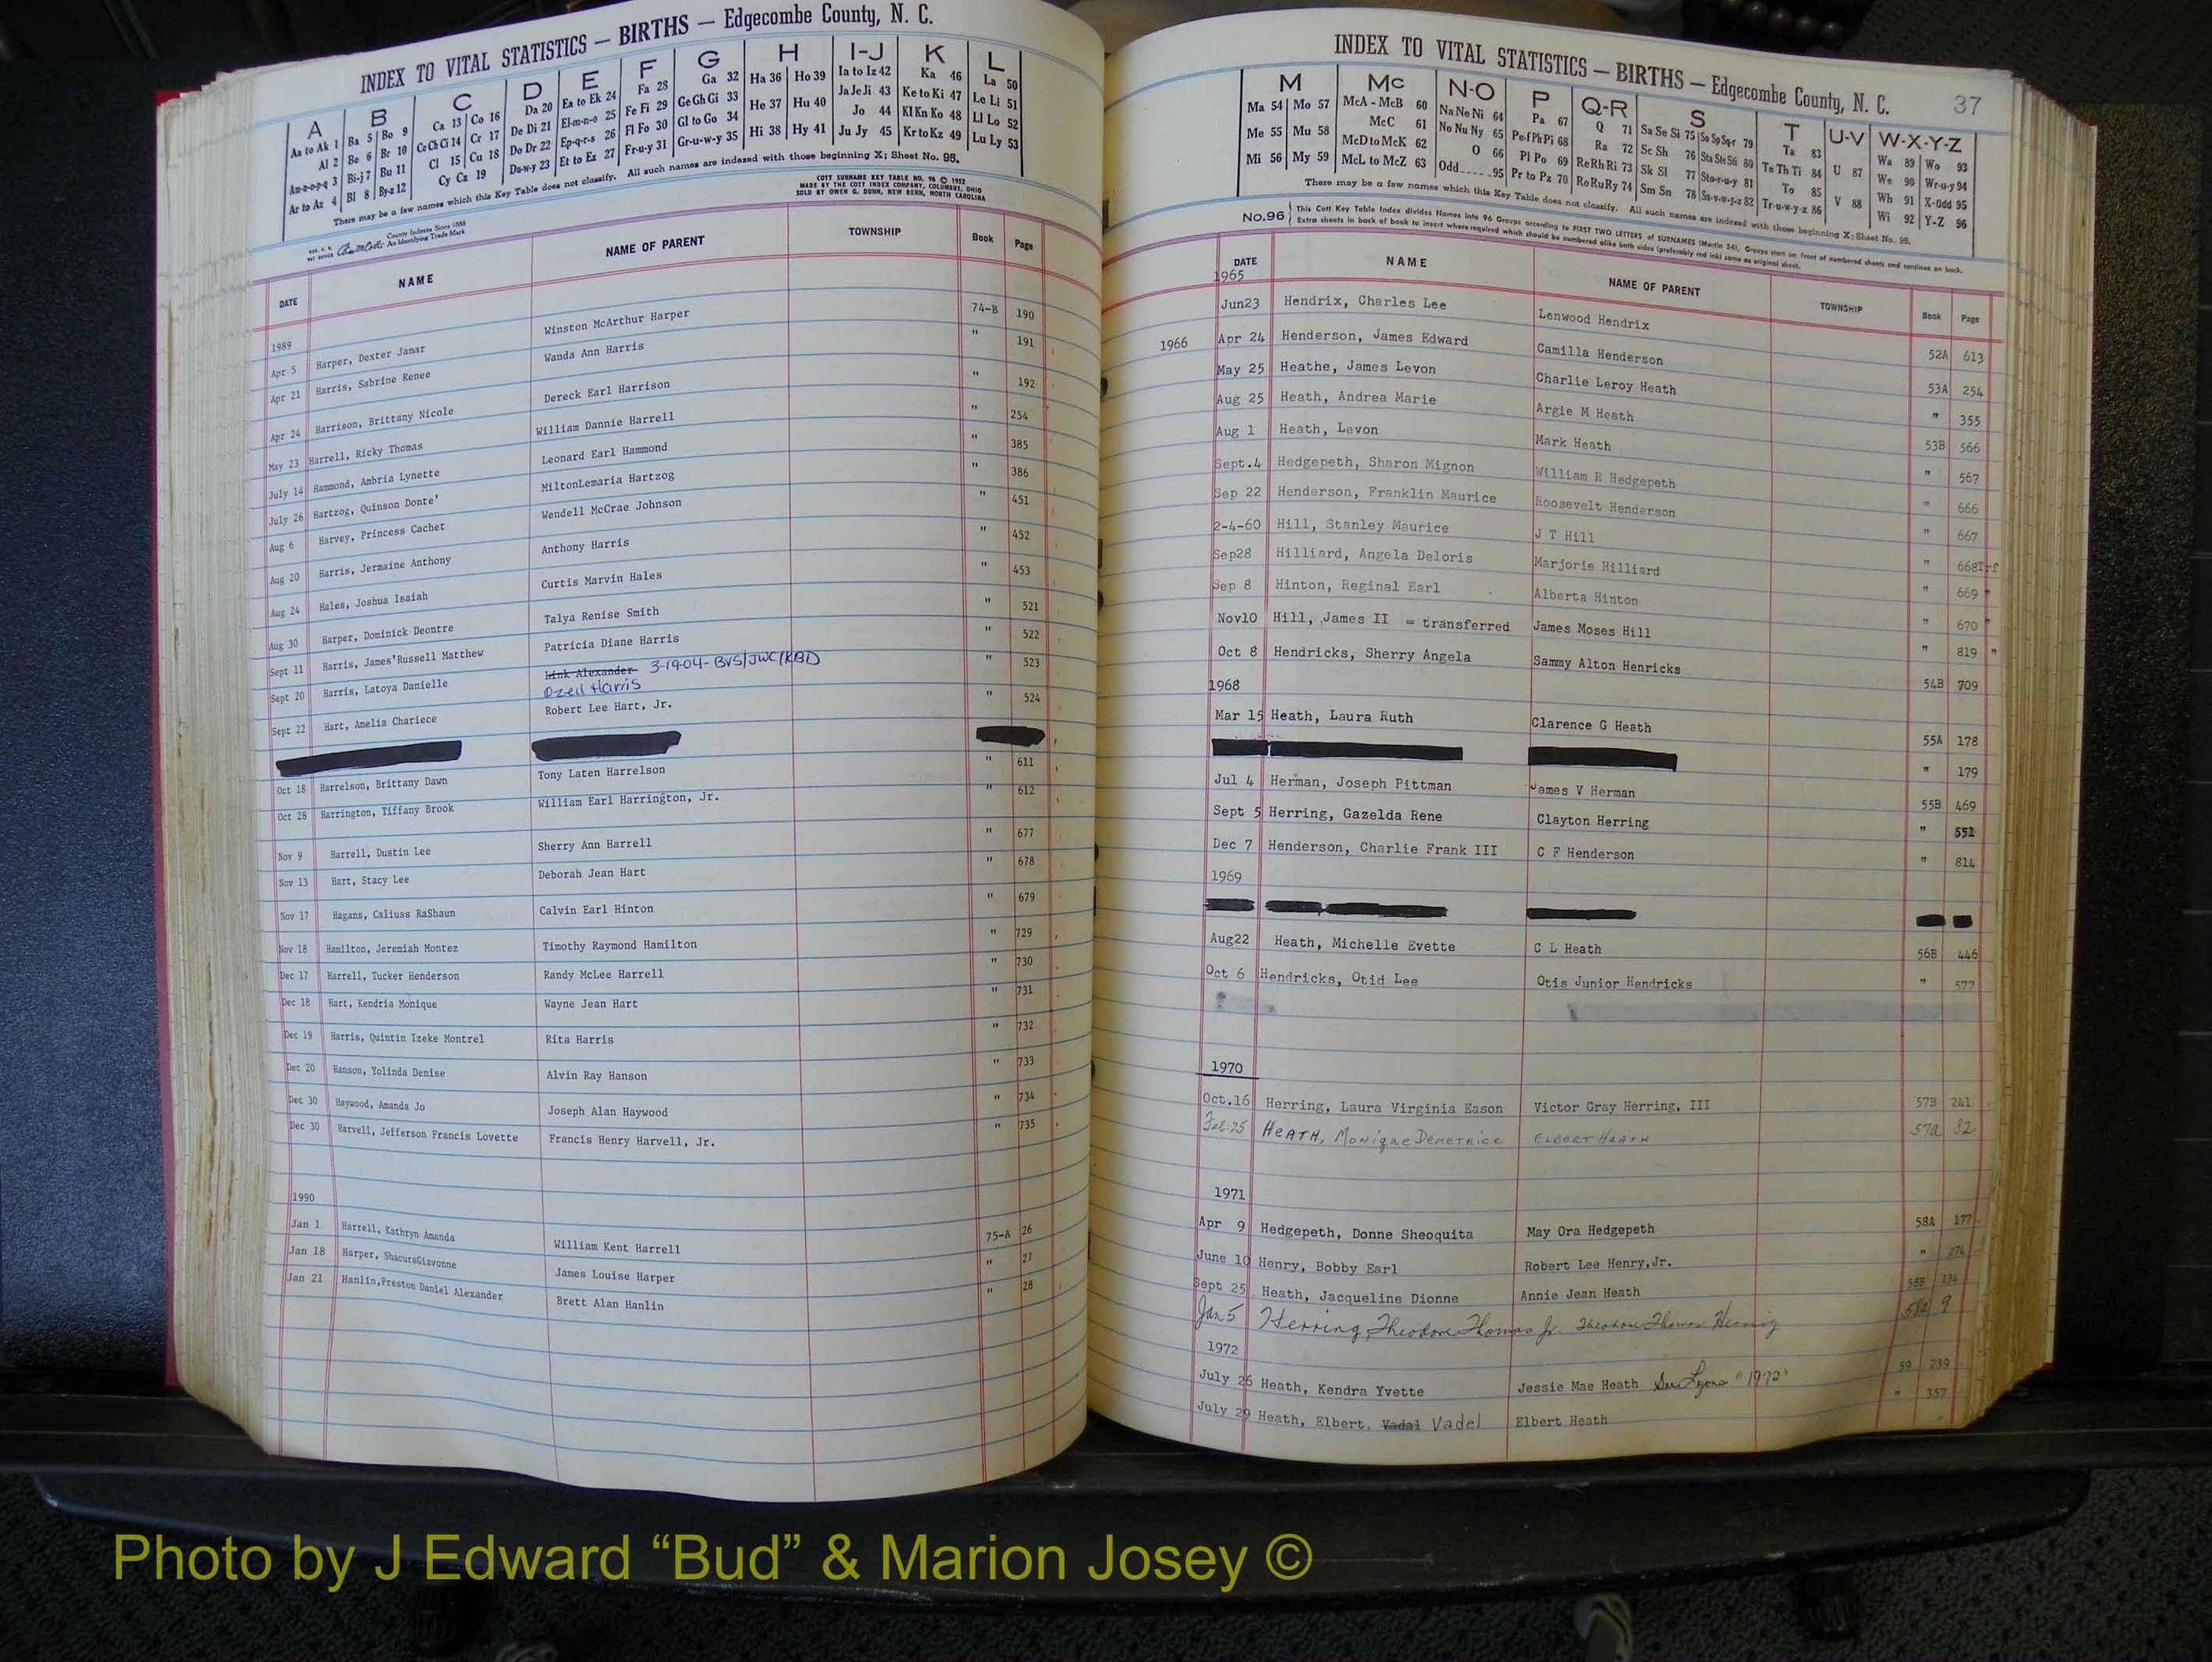 INDEX TO VITAL STATISTICS — BIRTHS — Edgecombe County, N. C.
A B C D E F G H I-J K L
Aa to Ak 1 Ba 5 Bo 9 Ca 13 Co 16 Da 20 Ea to Ek 24 Fa 28 Ga 32 Ha 36 Ho 39 Ia to Iz 42 Ka 46 La 50
Al 2 Be 6 Br 10 Ce Ch Ci 14 Cr 17 De Di 21 El-m-n-o 25 Fe Fi 29 Ge Gh Gi 33 He 37 Hu 40 Ja Je Ji 43 Ke to Ki 47 Le Li 51
Am-n-o-p-q 3 Bi-j 7 Bu 11 Cl 15 Cu 18 Do Dr 22 Ep-q-r-s 26 Fl Fo 30 Gl to Go 34 Hi 38 Hy 41 Jo 44 Kl Kn Ko 48 Ll Lo 52
Ar to Az 4 Bl 8 By-z 12 Cy Cz 19 Du-w-y 23 Et to Ez 27 Fr-u-y 31 Gr-u-w-y 35 Ju Jy 45 Kr to Kz 49 Lu Ly 53
There may be a few names which this Key Table does not classify. All such names are indexed with those beginning X; Sheet No. 95.
County Indexes Since 1888
An Identifying Trade Mark
COTT SURNAME KEY TABLE NO. 96 © 1952
MADE BY THE COTT INDEX COMPANY, COLUMBUS, OHIO
SOLD BY OWEN G. DUNN, NEW BERN, NORTH CAROLINA
DATE NAME NAME OF PARENT TOWNSHIP Book Page
1989
Apr 5 Harper, Dexter Jamar Winston McArthur Harper 74-B 190
Apr 21 Harris, Sabrine Renee Wanda Ann Harris " 191
Apr 24 Harrison, Brittany Nicole Dereck Earl Harrison " 192
May 23 Harrell, Ricky Thomas William Dannie Harrell " 254
July 14 Hammond, Ambria Lynette Leonard Earl Hammond " 385
July 26 Hartzog, Quinson Donte' MiltonLemaria Hartzog " 386
Aug 6 Harvey, Princess Cachet Wendell McCrae Johnson " 451
Aug 20 Harris, Jermaine Anthony Anthony Harris " 452
Aug 24 Hales, Joshua Isaiah Curtis Marvin Hales " 453
Aug 30 Harper, Dominick Deontre Talya Renise Smith " 521
Sept 11 Harris, James'Russell Matthew Patricia Diane Harris " 522
Sept 20 Harris, Latoya Danielle Link Alexander 3-19-04-BVS/JWC/KBD " 523
Ozell Harris
Sept 22 Hart, Amelia Chariece Robert Lee Hart, Jr. " 524
Oct 18 Harrelson, Brittany Dawn Tony Laten Harrelson " 611
Oct 28 Harrington, Tiffany Brook William Earl Harrington, Jr. " 612
Nov 9 Harrell, Dustin Lee Sherry Ann Harrell " 677
Nov 13 Hart, Stacy Lee Deborah Jean Hart " 678
Nov 17 Hagans, Caliuss RaShaun Calvin Earl Hinton " 679
Nov 18 Hamilton, Jeremiah Montez Timothy Raymond Hamilton " 729
Dec 17 Harrell, Tucker Henderson Randy McLee Harrell " 730
Dec 18 Hart, Kendria Monique Wayne Jean Hart " 731
Dec 19 Harris, Quintin Izeke Montrel Rita Harris " 732
Dec 20 Hanson, Yolinda Denise Alvin Ray Hanson " 733
Dec 30 Haywood, Amanda Jo Joseph Alan Haywood " 734
Dec 30 Harvell, Jefferson Francis Lovette Francis Henry Harvell, Jr. " 735
1990
Jan 1 Harrell, Kathryn Amanda William Kent Harrell 75-A 26
Jan 18 Harper, ShacuraGiavonne James Louise Harper " 27
Jan 21 Hanlin,Preston Daniel Alexander Brett Alan Hanlin " 28
INDEX TO VITAL STATISTICS — BIRTHS — Edgecombe County, N. C. 37
M Mc N-O P Q-R S T U-V W-X-Y-Z
Ma 54 Mo 57 McA - McB 60 Na Ne Ni 64 Pa 67 Q 71 Sa Se Si 75 So Sp Sq-r 79 Ta 83 U 87 Wa 89 Wo 93
Me 55 Mu 58 McC 61 No Nu Ny 65 Pe-f Ph Pi 68 Ra 72 Sc Sh 76 Sta Ste Sti 80 Te Th Ti 84 V 88 We 90 Wr-u-y 94
Mi 56 My 59 McD to McK 62 O 66 Pl Po 69 Re Rh Ri 73 Sk Sl 77 Sto-r-u-y 81 To 85 Wh 91 X-Odd 95
McL to McZ 63 Odd 95 Pr to Pz 70 Ro Ru Ry 74 Sm Sn 78 Su-v-w-y-z 82 Tr-u-w-y-z 86 Wi 92 Y-Z 96
There may be a few names which this Key Table does not classify. All such names are indexed with those beginning X; Sheet No. 95.
No.96 This Cott Key Table Index divides Names into 96 Groups according to FIRST TWO LETTERS of SURNAMES (Martin 54). Groups start on front of numbered sheets and continue on back.
Extra sheets in back of book to insert where required which should be numbered alike both sides (preferably red ink) same as original sheet.
DATE NAME NAME OF PARENT TOWNSHIP Book Page
1965
Jun23 Hendrix, Charles Lee Lenwood Hendrix 52A 613
1966 Apr 24 Henderson, James Edward Camilla Henderson 53A 254
May 25 Heathe, James Levon Charlie Leroy Heath " 355
Aug 25 Heath, Andrea Marie Argie M Heath 53B 566
Aug 1 Heath, Levon Mark Heath " 567
Sept.4 Hedgepeth, Sharon Mignon William R Hedgepeth " 666
Sep 22 Henderson, Franklin Maurice Roosevelt Henderson " 667
2-4-60 Hill, Stanley Maurice J T Hill " 668Trf
Sep28 Hilliard, Angela Deloris Marjorie Hilliard " 669 "
Sep 8 Hinton, Reginal Earl Alberta Hinton " 670 "
Nov10 Hill, James II = transferred James Moses Hill " 819 "
Oct 8 Hendricks, Sherry Angela Sammy Alton Henricks 54B 709
1968
Mar 15 Heath, Laura Ruth Clarence G Heath 55A 178
" 179
Jul 4 Herman, Joseph Pittman James V Herman 55B 469
Sept 5 Herring, Gazelda Rene Clayton Herring " 551
Dec 7 Henderson, Charlie Frank III C F Henderson " 814
1969
Aug22 Heath, Michelle Evette C L Heath 56B 446
Oct 6 Hendricks, Otid Lee Otis Junior Hendricks " 577
1970
Oct.16 Herring, Laura Virginia Eason Victor Gray Herring, III 57B 241
Feb-25 HEATH, Monique Demetrice ELBERT HEATH 57a 32
1971
Apr 9 Hedgepeth, Donne Sheoquita May Ora Hedgepeth 58A 177
June 10 Henry, Bobby Earl Robert Lee Henry,Jr. " 274
Sept 25 Heath, Jacqueline Dionne Annie Jean Heath 58B 134
Jan 5 Herring, Theodore Thomas Jr. Theodore Thomas Herring 58a 9
1972
July 26 Heath, Kendra Yvette Jessie Mae Heath See Lyons "1972" 59 239
July 29 Heath, Elbert, Vadal Vadel Elbert Heath " 357
Photo by J Edward “Bud” & Marion Josey ©